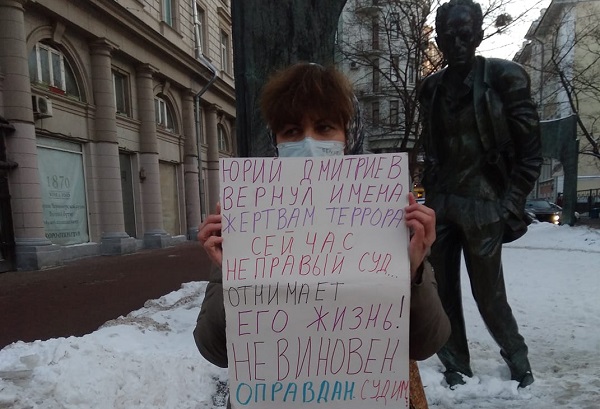 ЮРИЙ ДМИТРИЕВ
ВЕРНУЛ ИМЕНА
ЖЕРТВАМ ТЕРРОРА
СЕЙЧАС
НЕПРАВЫЙ СУД...
ОТНИМАЕТ
ЕГО ЖИЗНЬ!
НЕВИНОВЕН
ОПРАВДАН. СУДИМ
1870